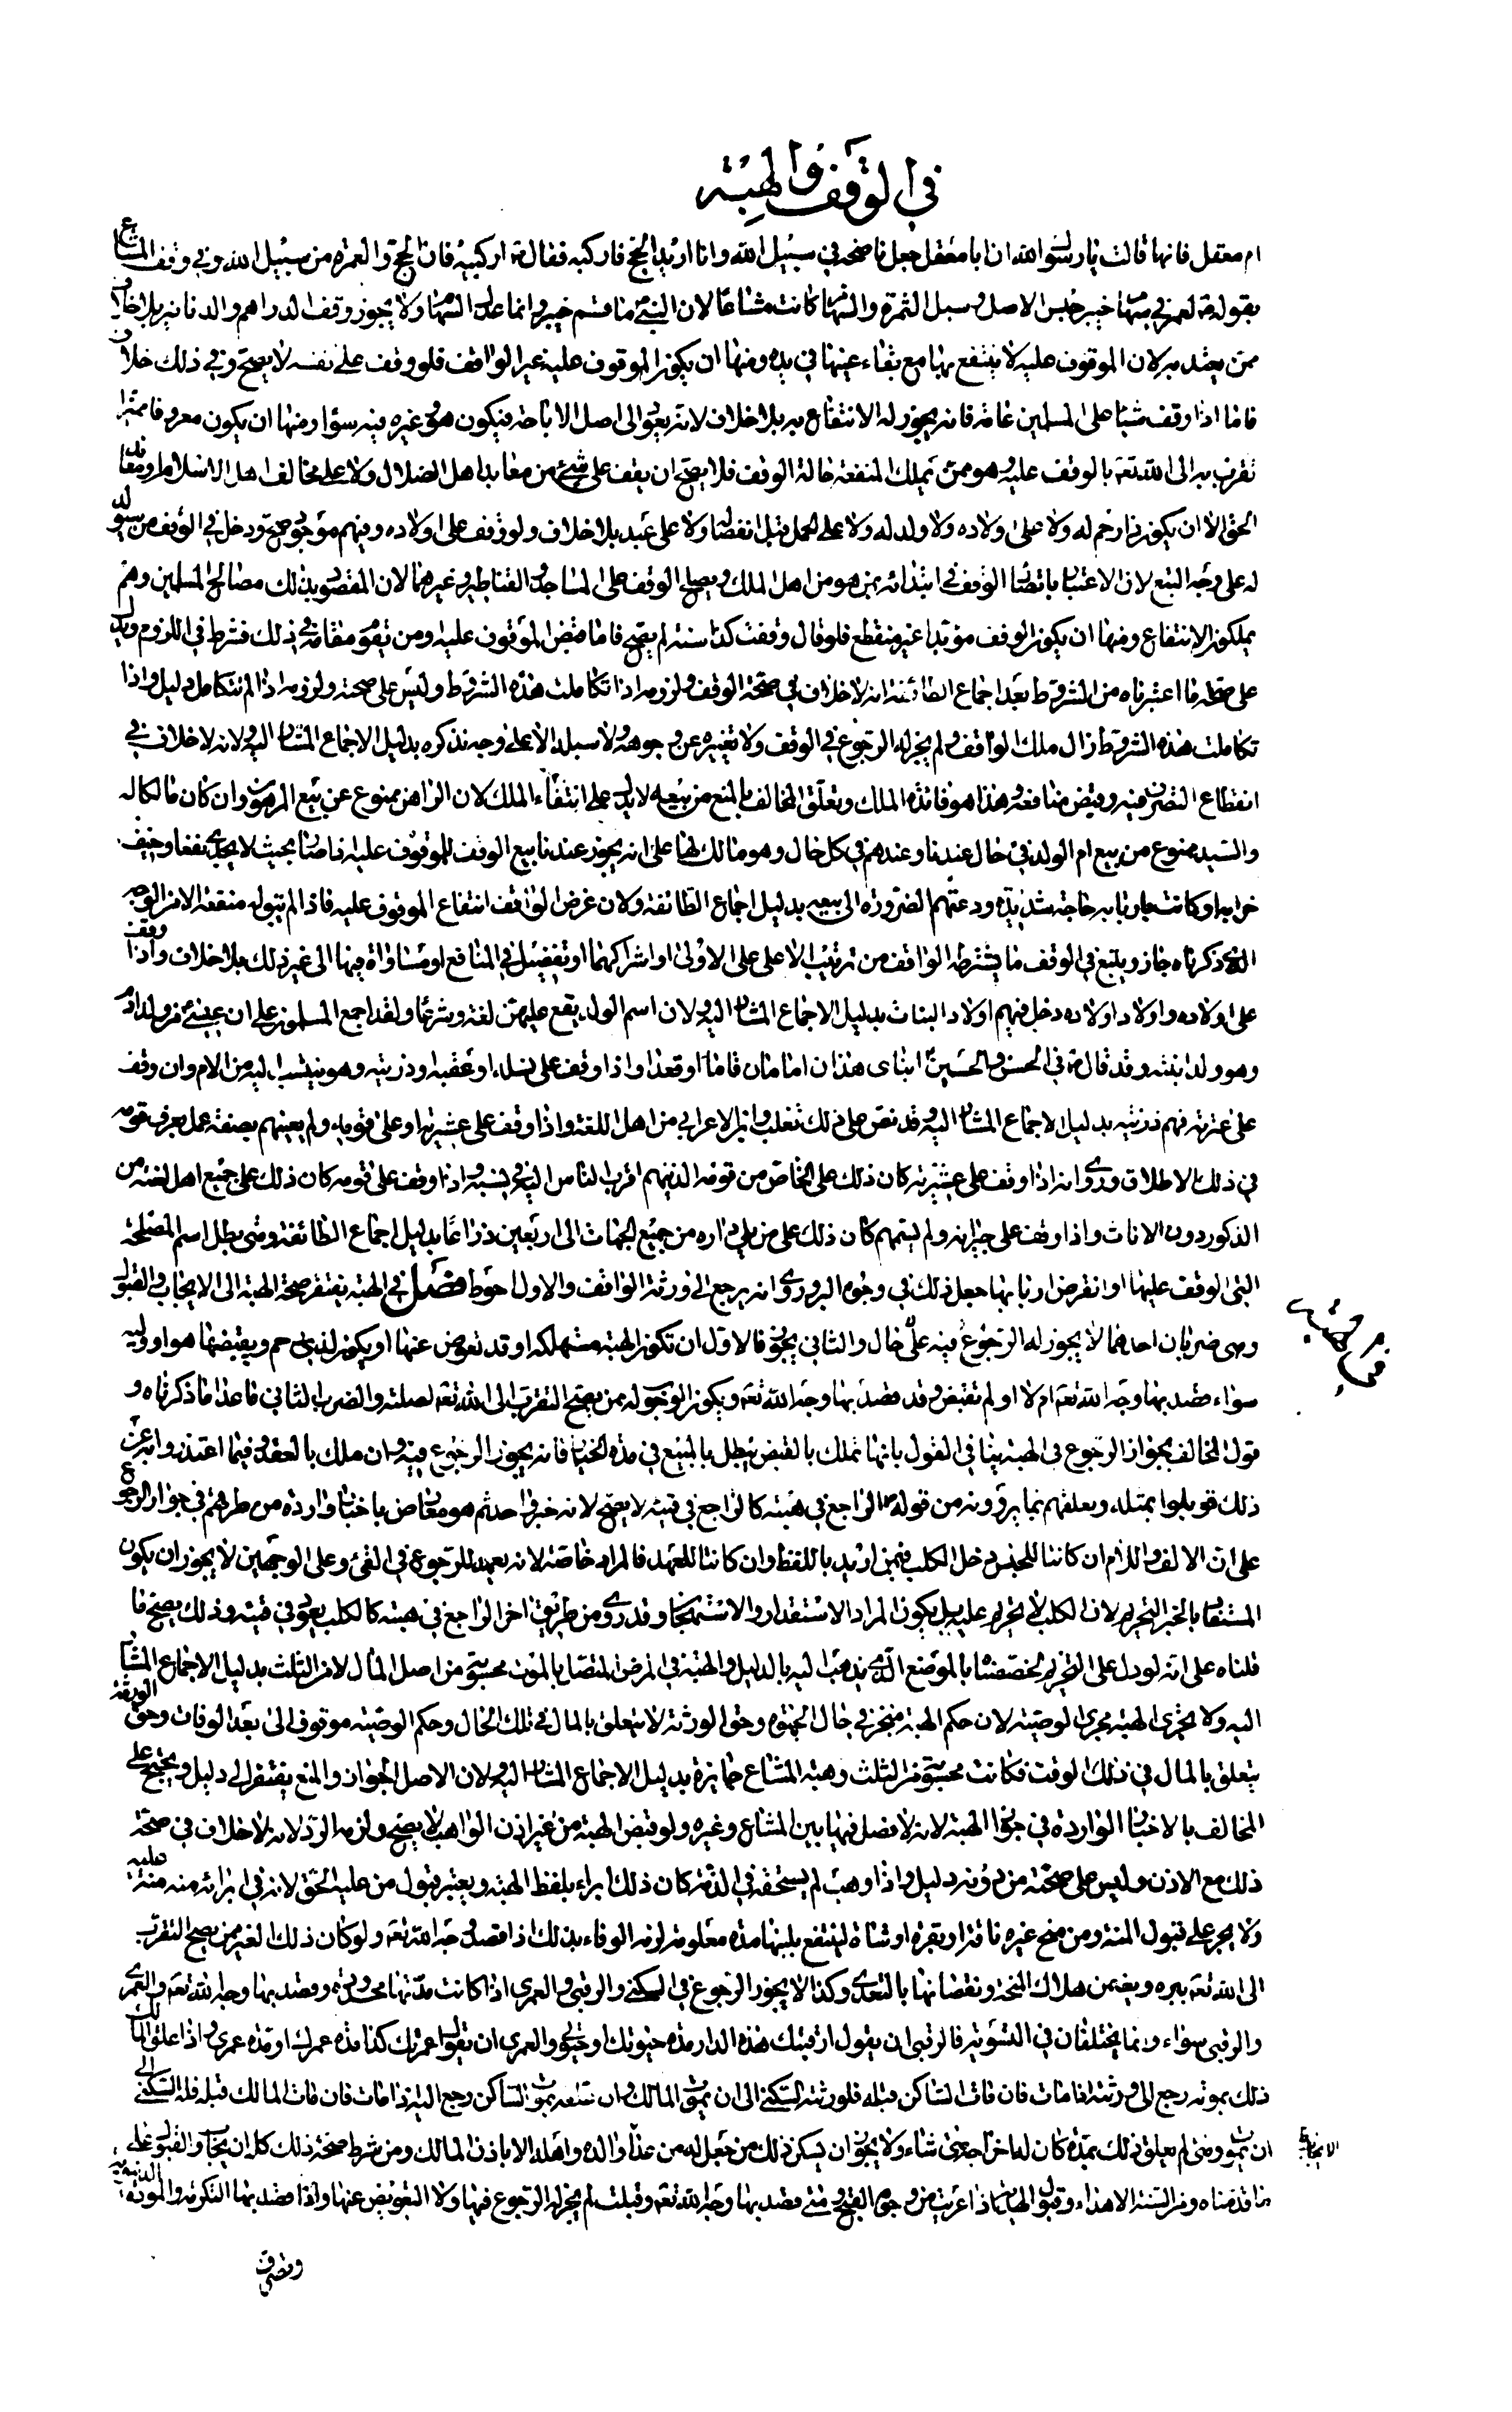 في الوقف والهبة
ام معقل فانها قالت يا رسول الله ان ابا معقل جعل ناضحه في سبيل الله وانا اريد الحج فاركبه فقال ص اركبيه فان الحج والعمرة من سبيل الله وفي وقف المشاع
بقوله ص لعمر في سهام خيبر حبس الاصل وسبل الثمرة والسهام كانت مشاعا لان النبي ص ما قسم خيبر وانما عدل السهام ولا يجوز وقف الدراهم والدنانير بلا خلاف
ممن يعتد به لان الموقوف عليه لا ينتفع بها مع بقاء عينها في يده ومنها ان يكون الموقوف عليه غير الواقف فلو وقف على نفسه لا يصح وفي ذلك خلاف
فاما اذا وقف شيئا على المسلمين عامة فانه يجوز له الانتفاع به بلا خلاف لانه يعود الى اصل الاباحة فيكون هو وغيره فيه سواء ومنها ان يكون معروفا متميزا
تقرب به الى الله تع بالوقف عليه وهو ممن يملك المنفعة حالة الوقف فلا يصح ان يقف على شيء من معابد اهل الضلال ولا على مخالف اهل الاسلام ومعاند
الحق الا ان يكون ذا رحم له ولا على اولاده ولا ولد له ولا على الحمل قبل انفصاله ولا على عبد بلا خلاف ولو وقف على اولاده وفيهم موجود صح ودخل في الوقف من سيولد
له على وجه التبع لان الاعتبار باتصال الوقف في ابتدائه بمن هو من اهل الملك ويصح الوقف على المساجد والقناطير وغيرهما لان المقصود بذلك مصالح المسلمين وهم
يملكون الانتفاع ومنها ان يكون الوقف مؤبدا غير منقطع فلو قال وقفت كذا سنة لم يصح فاما قبض الموقوف عليه ومن يقوم مقامه في ذلك فشرط في اللزوم ويدل
على صحة ما اعتبرناه من الشروط بعد اجماع الطائفة انه لا خلاف في صحة الوقف ولزومه اذا تكاملت هذه الشروط وليس على صحته ولزومه اذا لم تتكامل دليل واذا
تكاملت هذه الشروط زال ملك الواقف ولم يجز له الرجوع في الوقف ولا تغييره عن وجوهه ولا سبله الا على وجه نذكره بدليل الاجماع المشار اليه ولانه لا خلاف في
انقطاع التصرف فيه وقبض منافعه وهذا هو فائدة الملك وتعلق المخالف بالمنع من بيعه لا يدل على انتفاء الملك لان الراهن ممنوع عن بيع المرهون وان كان مالكا له
والسيد ممنوع من بيع ام الولد في حال عندنا وعندهم في كل حال وهو مالك لها على انه يجوز عندنا بيع الوقف للموقوف عليه اذا صار بحيث لا يجدي نفعا وخيف
خرابه او كانت باربابه حاجة شديدة ودعتهم الضرورة الى بيعه بدليل اجماع الطائفة ولان غرض الواقف انتفاع الموقوف عليه فاذا لم يبق له منفعة الا من الوجه
الذي ذكرناه جاز ويتبع في الوقف ما يشترطه الواقف من ترتيب الاعلى على الادنى او اشراكهما او تفضيل في المنافع او مساواة فيها الى غير ذلك بلا خلاف واذا وقف
على اولاده واولاد اولاده دخل فيهم اولاد البنات بدليل الاجماع المشار اليه ولان اسم الولد يقع عليهن لغة وشرعا ولقد اجمع المسلمون على ان عيسى ع من ولد ادم
وهو ولد ابنته وقد قال ص في الحسن والحسين ع ابناي هذان امامان قاما او قعدا واذا وقف على نسله او عقبه او ذريته وهو ينتسب اليه من الام وان وقف
على عترته فهم ذريته بدليل الاجماع المشار اليه وقد نص على ذلك ثعلب وابن الاعرابي من اهل اللغة واذا وقف على عشيرته او على قومه ولم يعينهم بصفة عمل بعرف قومه
في ذلك الاطلاق وروي انه اذا وقف على عشيرته كان ذلك على الخاص من قومه الذينهم اقرب الناس اليه في نسبه واذا وقف على قومه كان ذلك على جميع اهل لغته من
الذكور دون الاناث واذا وقف على جيرانه ولم يسمهم كان ذلك على من يلي داره من جميع الجهات الى اربعين ذراعا بدليل اجماع الطائفة ومتى بطل اسم المصلحة
التي الوقف عليها او انقرض اربابها جعل ذلك في وجوه البر وروي انه يرجع الى ورثة الواقف والاول احوط فصل في الهبة يفتقر صحة الهبة الى الايجاب والقبول
وهي ضربان احدهما لا يجوز له الرجوع فيه على حال والثاني يجوز فالاول ان تكون الهبة مستهلكة او قد تعوض عنها او يكون لذي رحم ويقبضها هو او وليه
سواء قصد بها وجه الله تع ام لا او لم تقبض وقد قصد بها وجه الله تع ويكون الموهوب له ممن يصح التقرب الى الله تع لصلته والضرب الثاني ما عدا ما ذكرناه و
قول المخالف بجواز الرجوع في الهبة ينافي القول بانها تملك بالقبض يبطل بالمبيع في مدة الخيار فانه يجوز الرجوع فيه وان ملك بالعقد فما اعتذروا به عن
ذلك قوبلوا بمثله وتعلقهم بما يروونه من قوله ص الراجع في هبته كالراجع في قيئه لا يصح لانه خبر واحد ثم هو معارض باخبار واردة من طرقهم في جواز الرجوع
على ان الالف واللام ان كانتا للجنس دخل الكلب فيمن اريد باللفظ وان كانتا للعهد فالمراد به خاصة لانه بعيد للرجوع في القيء وعلى الوجهين لا يجوز ان يكون
المستفاد بالخبر التحريم لان الكلب لا تحريم عليه بل يكون المراد الاستقذار والاستهجان وقد روي من طريق اخر الراجع في هبته كالكلب يعود في قيئه وذلك يصحح ما
قلناه على انه لو دل على التحريم لخصصناه بالموضع الذي نذهب اليه بالدليل والهبة في المرض المتصل بالموت محسوبة من اصل المال لا من الثلث بدليل الاجماع المشار
اليه ولا يجري الهبة مجرى الوصية لان حكم الهبة منجز في حال الحيوة وحق الورثة لا يتعلق بالمال في تلك الحال وحكم الوصية موقوف الى بعد الوفات وحق الورثة
يتعلق بالمال في ذلك الوقت فكانت محسوبة من الثلث وهبة المشاع جايزة بدليل الاجماع المشار اليه ولان الاصل الجواز والمنع يفتقر الى دليل ويحتج على
المخالف بالاخبار الواردة في جواز الهبة لانه لا فصل فيها بين المشاع وغيره ولو قبض الهبة من غير اذن الواهب لا يصح ولزمه الرد لانه لا خلاف في صحة
ذلك مع الاذن وليس على صحته من دونه دليل واذا وهب لم يستحقه في الذمة كان ذلك ابراء بلفظ الهبة ويعتبر قبول من عليه الحق لانه في ابرائه منه منة عليه
ولا يجبر على قبول المنة ومن منح غيره ناقة او بقرة او شاة لينتفع بلبنها مدة معلومة لزمه الوفاء بذلك اذا قصد وجه الله تع ولو كان ذلك لغير من يصح التقرب
الى الله تع ببره ويضمن هلاك المنحة ونقصانها بالتعدي وكذا لا يجوز الرجوع في السكنى والرقبى والعمرى اذا كانت مدتها محدودة وقصد بها وجه الله تع والعمرى
والرقبى سواء وانما يختلفان في التسمية فالرقبى ان يقول ارقبتك هذه الدار مدة حيوتك او حيوتي والعمرى ان يقول اعمرتك كذا مدة عمرك او مدة عمري واذا علق المالك
ذلك بموته رجع الى ورثته اذا مات فان مات الساكن قبله فلورثته السكنى الى ان يموت المالك وان علقه بموت الساكن رجع اليه اذا مات فان مات المالك قبله فله السكنى الى
ان يموت ومتى لم يعلق ذلك بمدة كان له اخراجه متى شاء ولا يجوز ان يسكن ذلك من جعل له من عدا ولده واهله الا باذن المالك ومن شرط صحة ذلك كله الايجاب والقبول على
ما قدمناه ومن السنة الاهداء وقبول الهدية اذا عريت من وجوه القبح ومتى قصد بها وجه الله تع وقبلت لم يجز له الرجوع فيها ولا التعويض عنها واذا قصد بها التكرمة والمودة الدنيوية
في الهبة
وتصرف